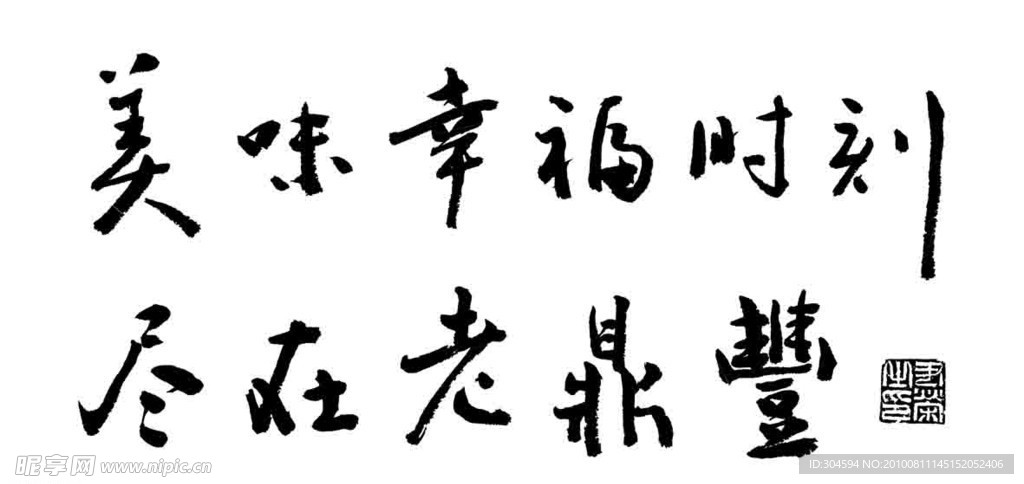 美味幸福时刻
尽在老鼎豐
昵享网 www.nipic.cn
ID:304594 NO:20100811145152052406